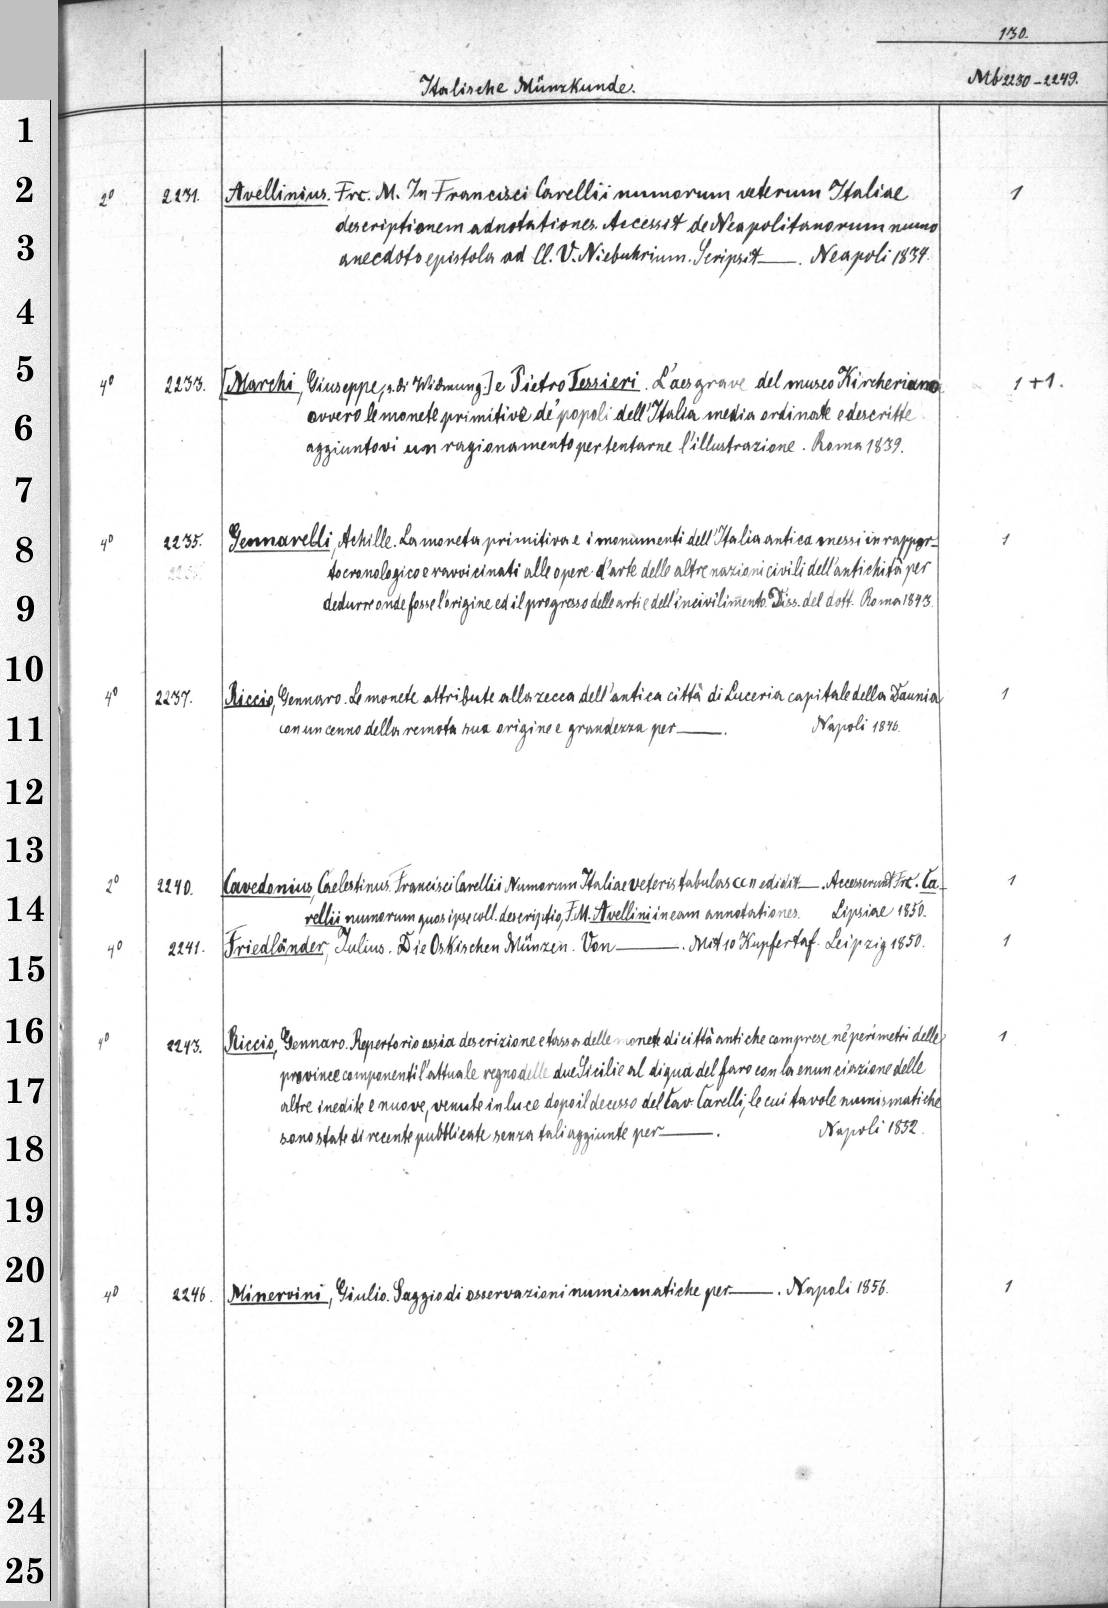 130.
Italische Münzkunde. Mb 2230-2249.
1
2 2° 2231. Avellinius. Frc. M. In Francisci Carellii numorum veterum Italiae 1
descriptionem adnotationes. Accessit de Neapolitanorum numo
3 anecdoto epistola ad Cl. V. Niebuhrium. Scripsit —. Neapoli 1834.
4
5 4° 2233. [Marchi, Giuseppe, s. di Widmung.] e Pietro Tessieri. L'aes grave del museo Kircheriano 1+1.
ovvero le monete primitive de' popoli dell'Italia media ordinate e descritte
6
aggiuntovi un ragionamento per tentarne l'illustrazione. Roma 1839.
7
8 4° 2235. Gennarelli, Achille. La moneta primitiva e i monumenti dell'Italia antica messi in rappor- 1
to cronologico e ravvicinati alle opere d'arte delle altre nazioni civili dell'antichità per
9 dedurre onde fosse l'origine ed il progresso delle arti e dell'incivilimento. Diss. del dott. Roma 1843.
10
4° 2237. Riccio, Gennaro. Le monete attribute alla zecca dell'antica città di Luceria capitale della Daunia 1
11 con un cenno della remota sua origine e grandezza per —. Napoli 1846.
12
13
2° 2240. Cavedonius, Caelestinus. Francisci Carellii Numorum Italiae veteris tabulas CCII edidit —. Accesserunt Frc. Ca- 1
14 rellii numorum quos ipse coll. descriptio, F. M. Avellini in eam annotationes. Lipsiae 1850.
4° 2241. Friedländer, Julius. Die Oskischen Münzen. Von —. Mit 10 Kupfertaf. Leipzig 1850. 1
15
16 4° 2243. Riccio, Gennaro. Repertorio ossia descrizione e tassa delle monete di città antiche comprese ne' perimetri delle 1
province componenti l'attuale regno delle due Sicilie al di qua del faro con la enunciazione delle
17 altre inedite e nuove, venute in luce dopo il decesso del Cav. Carelli, le cui tavole numismatiche
18 sono state di recente pubblicate senza tali aggiunte per —. Napoli 1852.
19
20
4° 2246. Minervini, Giulio. Saggio di osservazioni numismatiche per —. Napoli 1856. 1
21
22
23
24
25